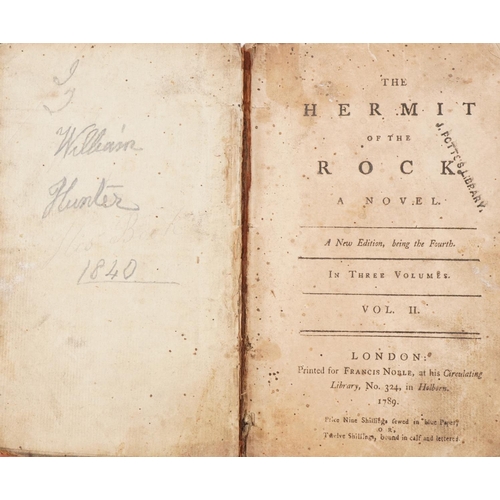 William
Hunter
1840
THE
HERMIT
OF THE
ROCK
A NOVEL.
J. POTTS'S LIBRARY.
A New Edition, being the Fourth.
IN THREE VOLUMES.
VOL. II.
LONDON:
Printed for FRANCIS NOBLE, at his Circulating
Library, No. 324, in Holborn.
1789.
Price Nine Shillings sewed in blue Paper,
OR,
Twelve Shillings, bound in calf and lettered